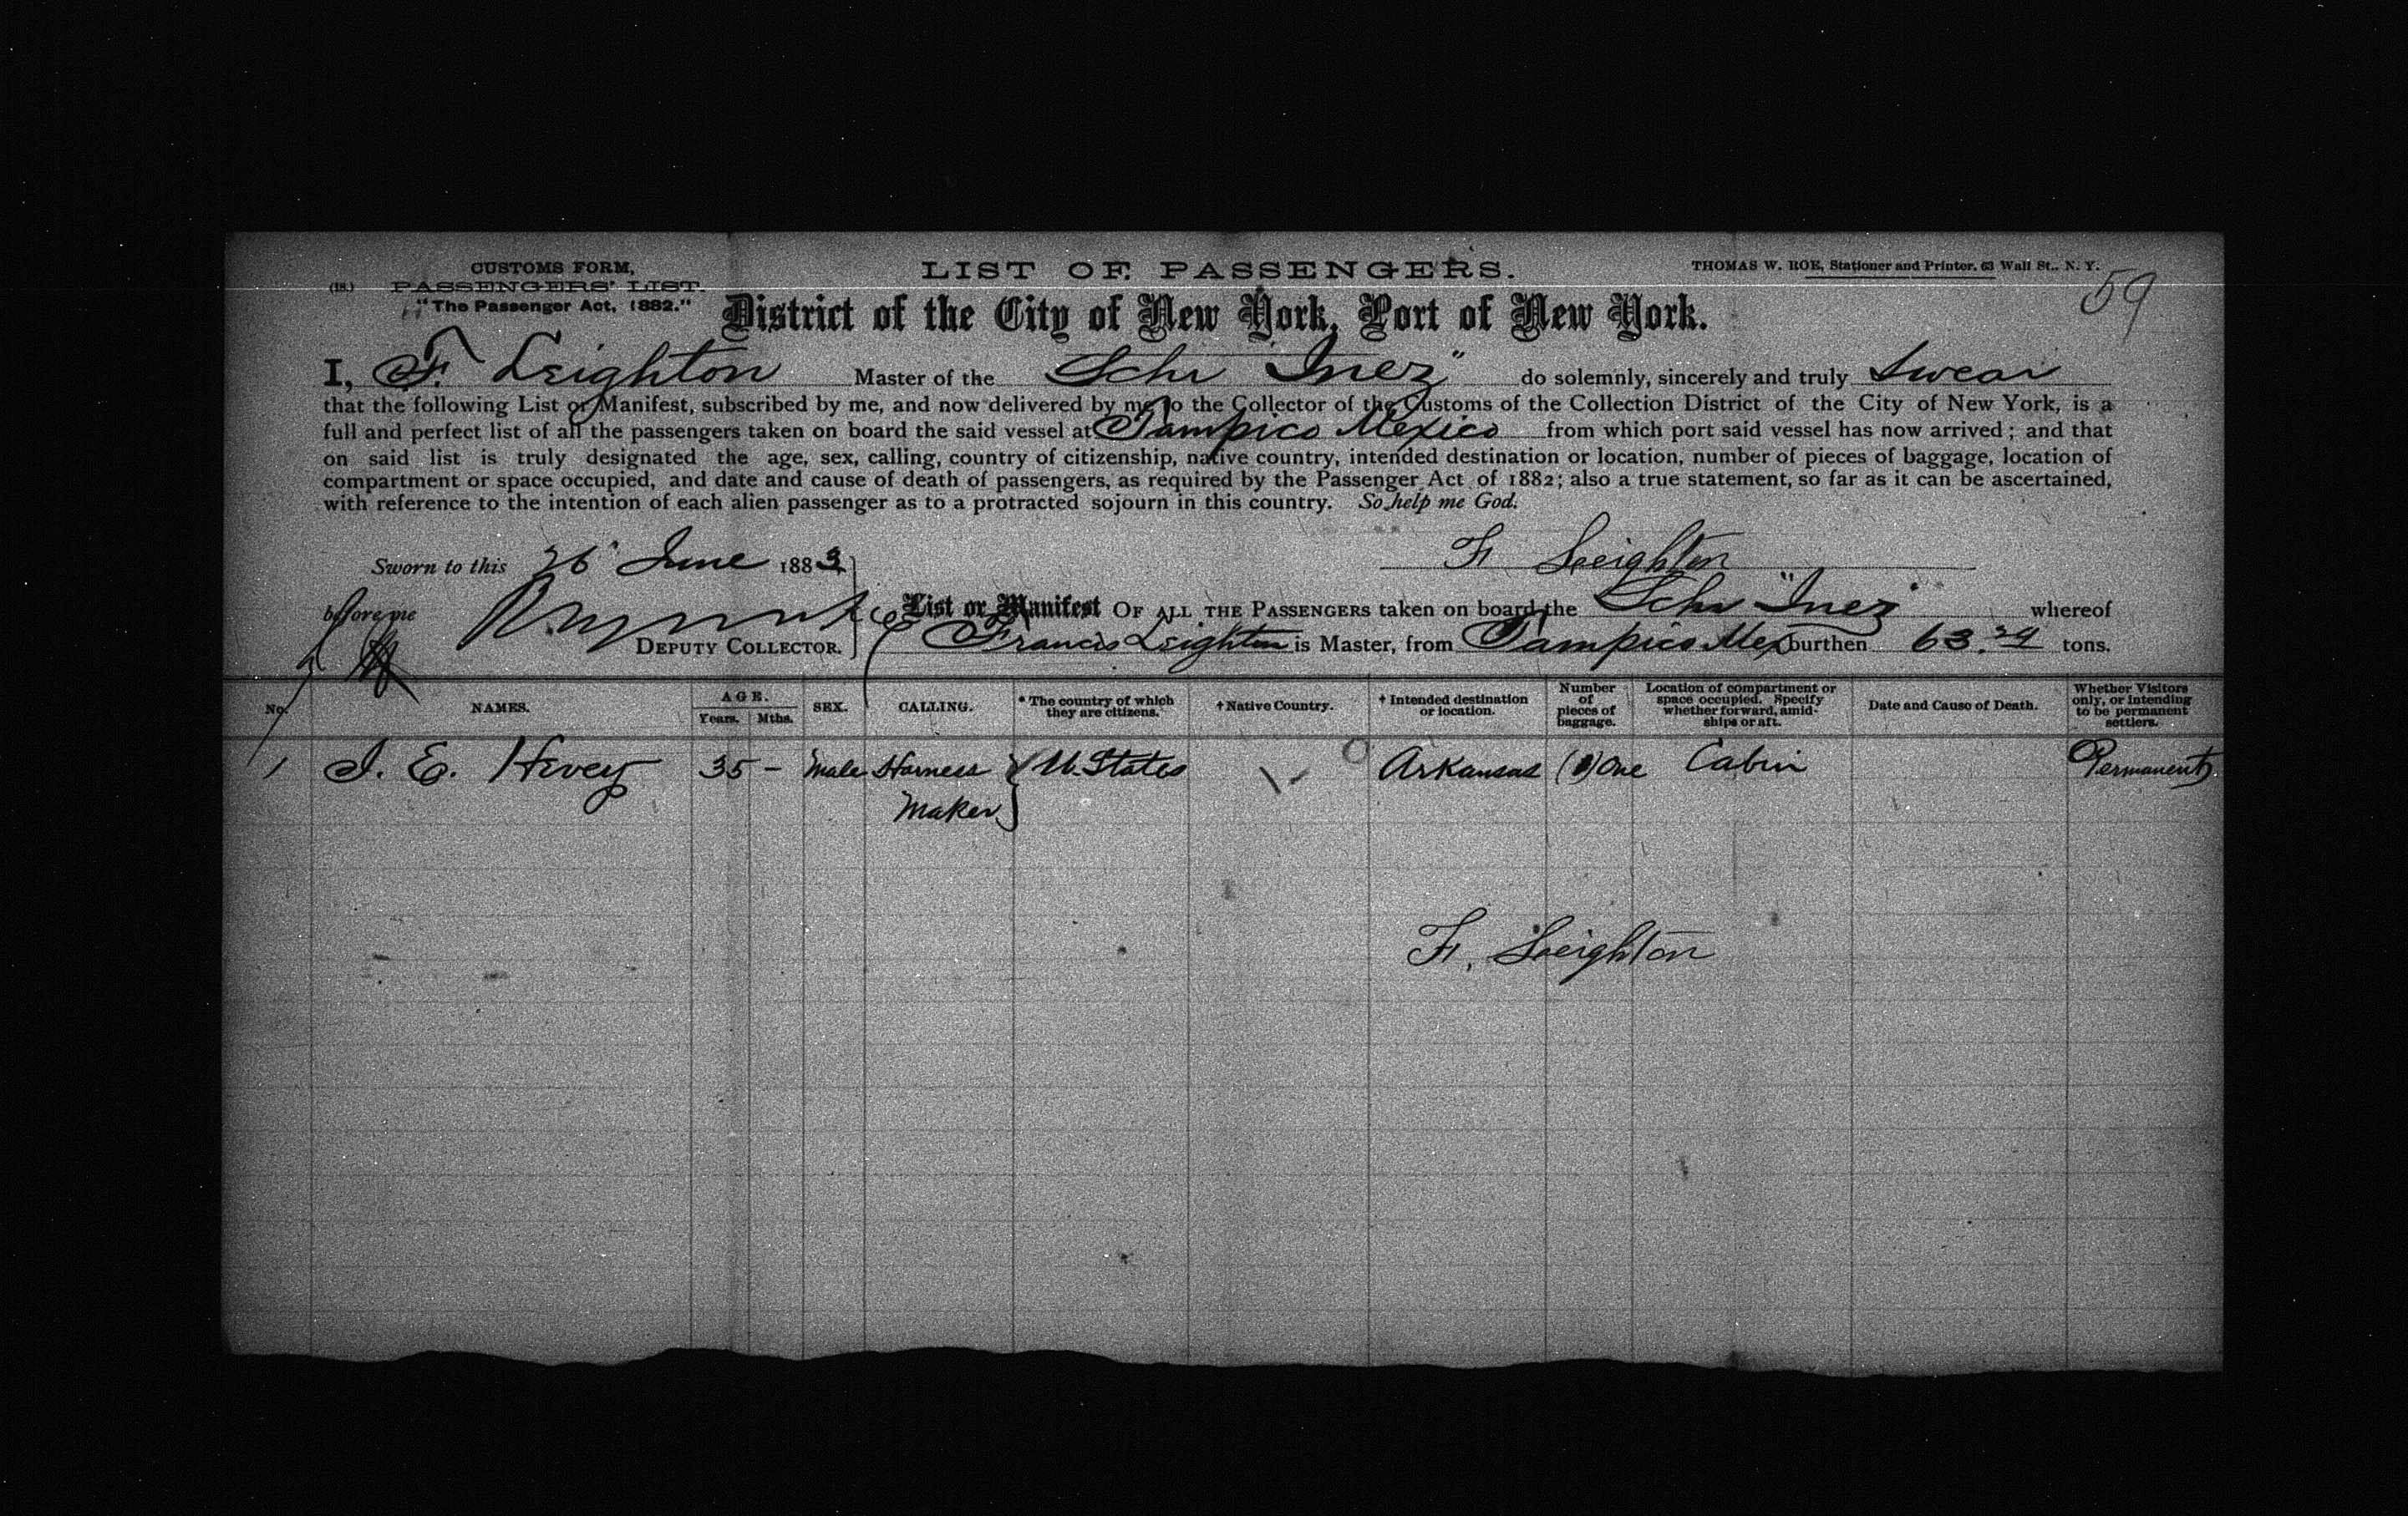 CUSTOMS FORM,
(18.) PASSENGERS' LIST.
"The Passenger Act, 1882."
LIST OF PASSENGERS.
THOMAS W. ROE, Stationer and Printer, 63 Wall St., N. Y.
59
District of the City of New York, Port of New York.
I, F. Leighton Master of the Schr Inez" do solemnly, sincerely and truly Swear
that the following List or Manifest, subscribed by me, and now delivered by me to the Collector of the Customs of the Collection District of the City of New York, is a
full and perfect list of all the passengers taken on board the said vessel at Tampico Mexico from which port said vessel has now arrived; and that
on said list is truly designated the age, sex, calling, country of citizenship, native country, intended destination or location, number of pieces of baggage, location of
compartment or space occupied, and date and cause of death of passengers, as required by the Passenger Act of 1882; also a true statement, so far as it can be ascertained,
with reference to the intention of each alien passenger as to a protracted sojourn in this country. So help me God.
Sworn to this 26 June 1883
F. Leighton
before me
DEPUTY COLLECTOR.
List or Manifest OF ALL THE PASSENGERS taken on board the Schr "Inez" whereof
Francis Leighton is Master, from Tampico Mex burthen 63.24 tons.
No. NAMES. AGE. Years. Mths. SEX. CALLING. * The country of which they are citizens. † Native Country. † Intended destination or location. Number of pieces of baggage. Location of compartment or space occupied. Specify whether forward, amidships or aft. Date and Cause of Death. Whether Visitors only, or intending to be permanent settlers.
1 J. E. Hevey 35 - Male Harness Maker } U. States Arkansas (1) One Cabin Permanent
F. Leighton